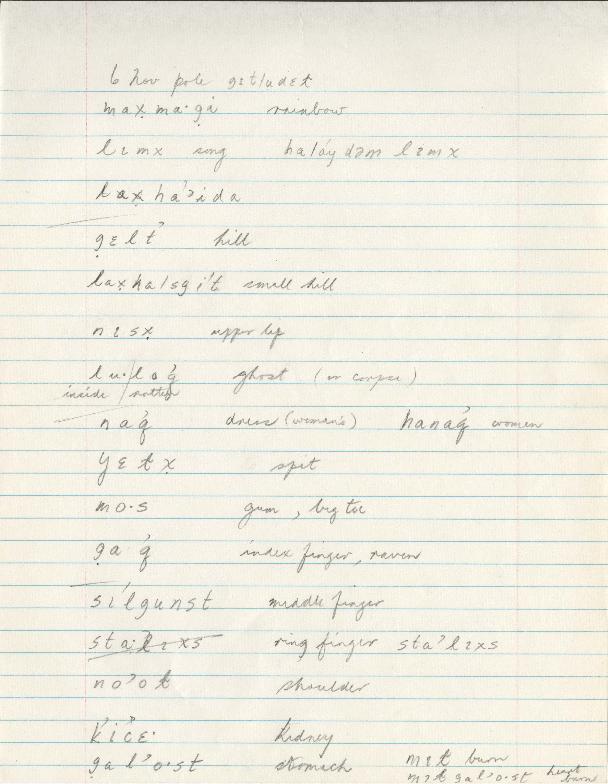 6 hov pole gɛt/udɛt
max̣ma·g̣á rainbow
lɪmx song ha/áydəm lɪmx
lax̣ha'ʔida
g̣ɛltʼ hill
lax̣ha/sg i't small hill
nɪsx̣ upper lip
lu·loq̓ ghost (or corpse)
inside / rotten
naq̓ dress (woman's) hanáq̓ women
yɛtx̣ spit
mo·s gum, big toe
g̣aq̓ index finger, raven
sílgunst middle finger
sta·lɪxs ring finger staʔlɪxs
noʔot shoulder
k̓íʔcɛ· kidney
g̣alʔo·st stomach mɪt burn
mɪt g̣alʔo·st heart burn